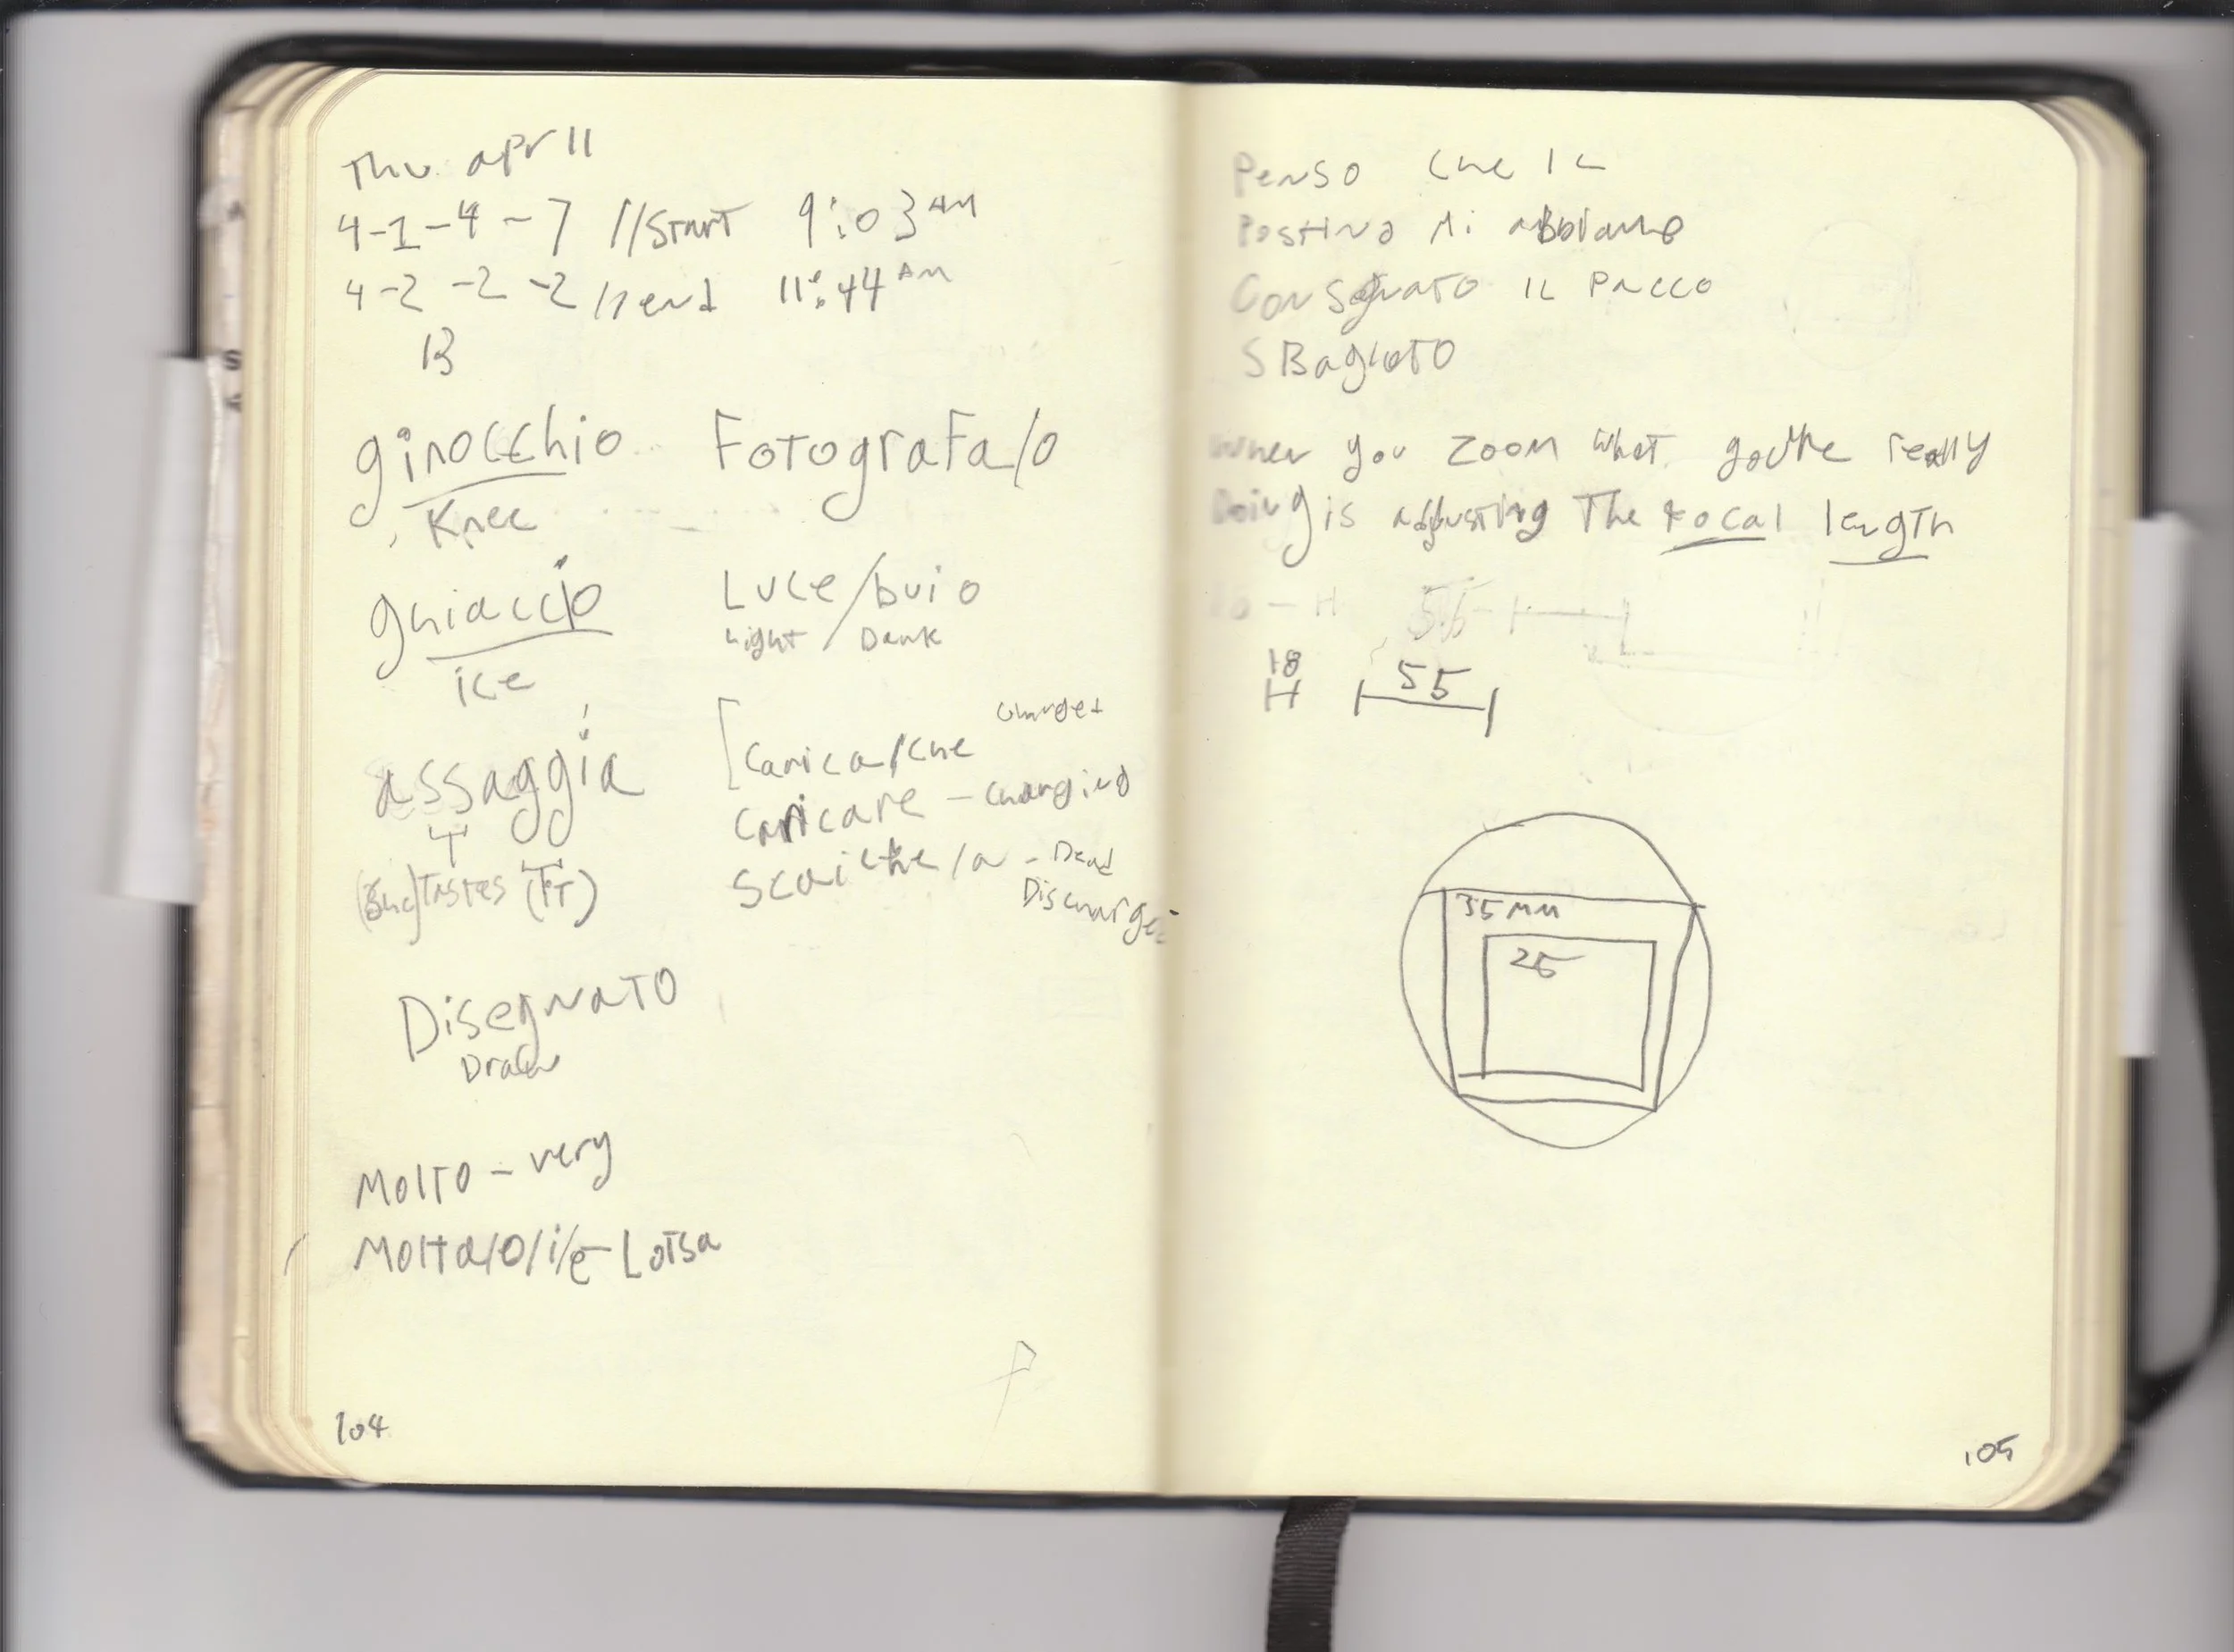 Thu apr 11
4-1-4-7 //Start 9:03 AM
4-2-2-2 // end 11:44 AM
B
ginocchio
Knee
ghiaccio
ice
assaggia
(She) Tastes (IT)
Disegnato
Draw
Molto - very
Molta/o/i/e - Lotsa
Fotografa/o
Luce/buio
Light / Dark
Charged
Carica/che
Caricare - Charging
Scariche/a - Dead
Discharged
104
Penso che il
Postino mi
Consegnato il Pacco
Sbagliato
When you zoom what you're really
Doing is adjusting The focal length
55
18
55
35mm
25
105